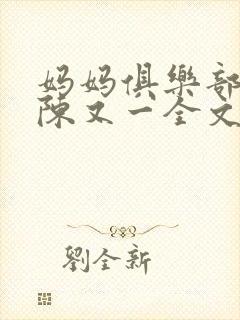 妈妈俱樂部
陳又一全文
劉全新